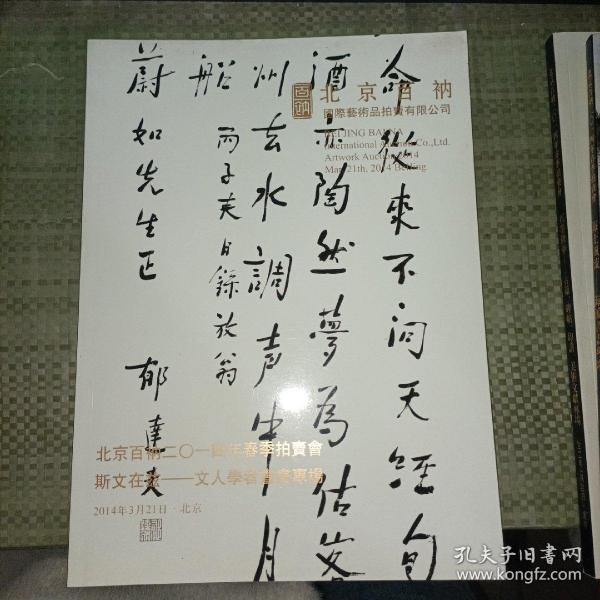 命從來不問天經旬
酒亦陶然夢為估客
州去水調声中月
船
丙子夫日錄放翁
蔚如先生正
郁達夫
百衲
北京百衲
國際藝術品拍賣有限公司
BEIJING BAINA
International Auction Co.,Ltd.
Artwork Auction 2014
Mar 21th, 2014 Beijing
北京百衲二〇一四年春季拍賣會
斯文在兹——文人學者書畫專場
2014年3月21日·北京
孔夫子旧书网
www.kongfz.com